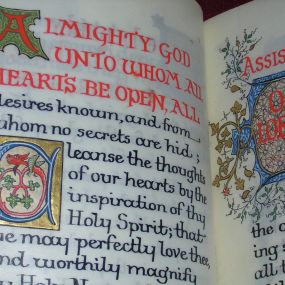 ALMIGHTY GOD
UNTO WHOM ALL
HEARTS BE OPEN, ALL
desires known, and from
whom no secrets are hid;
Cleanse the thoughts
of our hearts by the
inspiration of thy
Holy Spirit; that
we may perfectly love thee,
and worthily magnify
thy Holy
ASSIS
the
ing
all